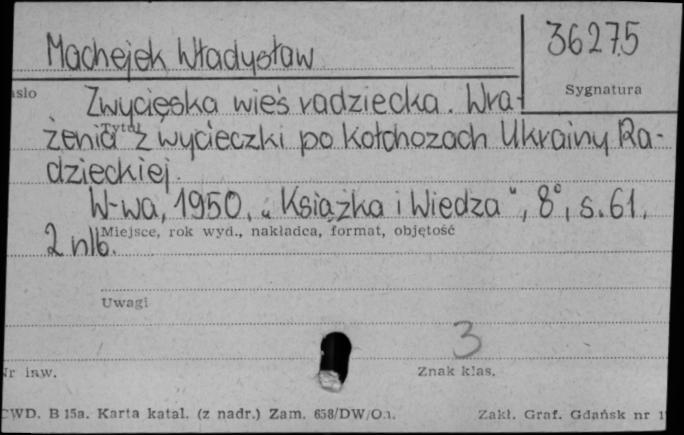 Machejek Władysław
36275
Sygnatura
asło
Zwycięska wieś radziecka. Wra-
Tytuł
żenia z wycieczki po kołchozach Ukrainy Ra-
dzieckiej.
W-wa, 1950, „Książka i Wiedza", 8°, s. 61,
Miejsce, rok wyd., nakładca, format, objętość
2 nlb.
Uwagi
3
Nr inw.
Znak klas.
CWD. B 15a. Karta katal. (z nadr.) Zam. 658/DW/O.1.
Zakł. Graf. Gdańsk nr 1